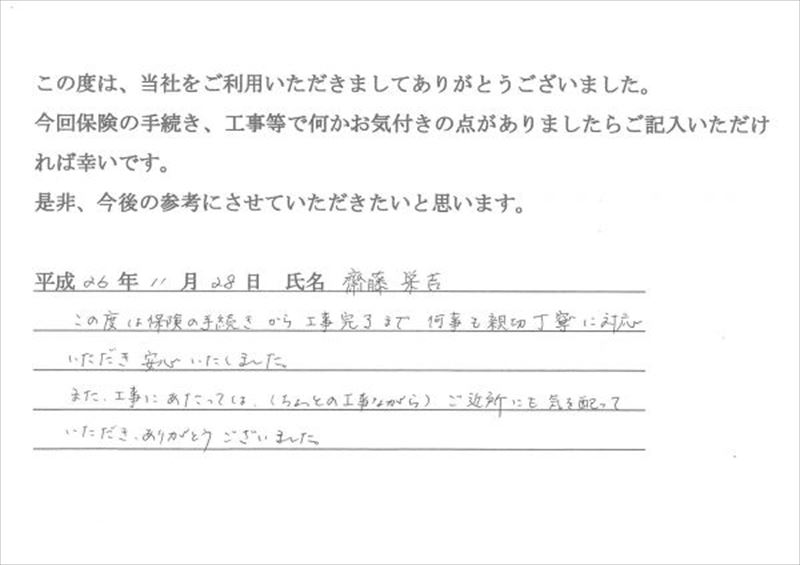 この度は、当社をご利用いただきましてありがとうございました。
今回保険の手続き、工事等で何かお気付きの点がありましたらご記入いただけ
れば幸いです。
是非、今後の参考にさせていただきたいと思います。
平成 26 年 11 月 28 日 氏名 齋藤 栄吉
この度は保険の手続きから工事完了まで 何事も親切丁寧に対応
いただき 安心いたしました。
また、工事にあたっては、(ちょっとの工事ながら) ご近所にも気を配って
いただき、ありがとうございました。